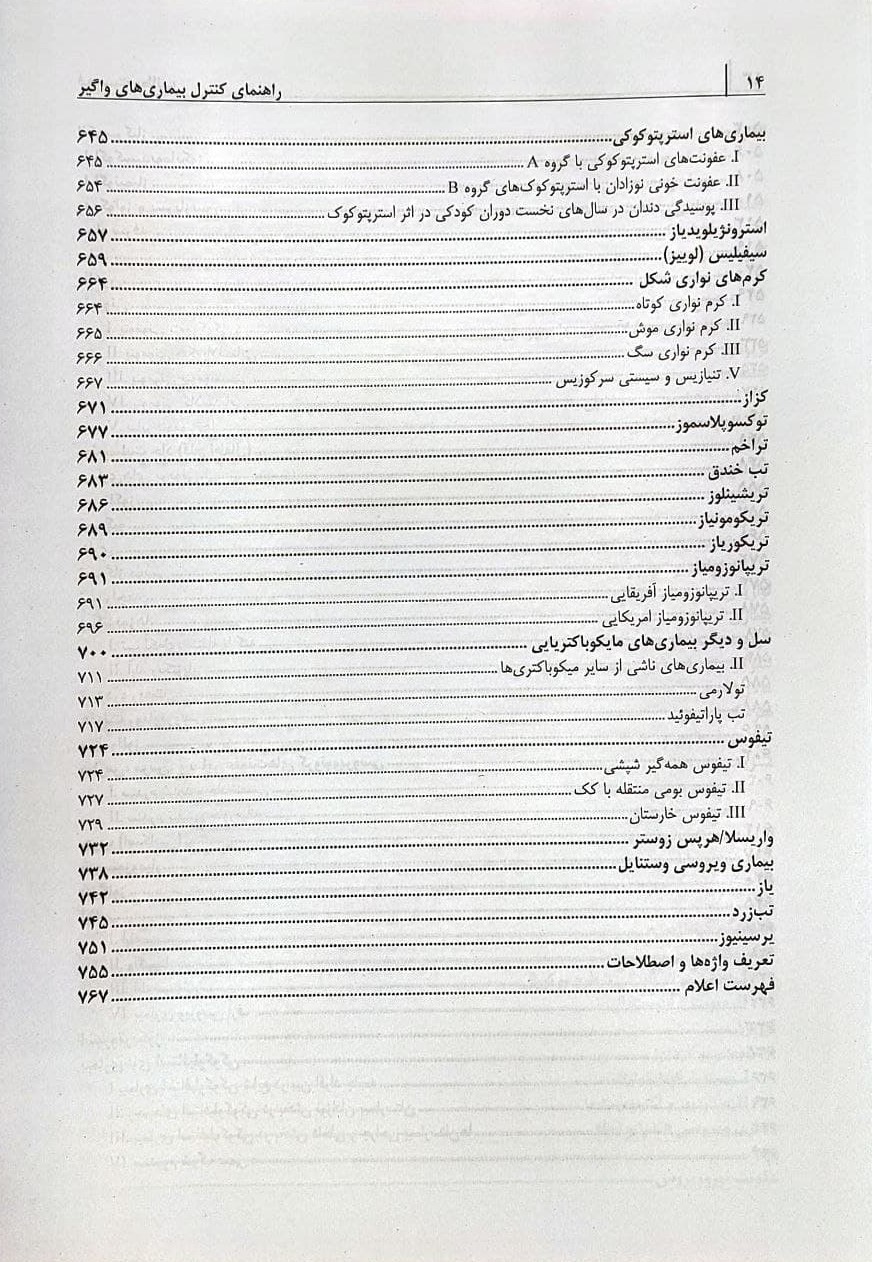 ۱۴
راهنمای کنترل بیماری‌های واگیر
بیماری‌های استرپتوکوکی ۶۴۵
I. عفونت‌های استرپتوکوکی با گروه A ۶۴۵
II. عفونت خونی نوزادان با استرپتوکوک‌های گروه B ۶۵۴
III. پوسیدگی دندان در سال‌های نخست دوران کودکی در اثر استرپتوکوک ۶۵۶
استرونژیلویدیاز ۶۵۷
سیفیلیس (لوییز) ۶۵۹
کرم‌های نواری شکل ۶۶۴
I. کرم نواری کوتاه ۶۶۴
II. کرم نواری موش ۶۶۵
III. کرم نواری سگ ۶۶۶
V. تنیازیس و سیستی سرکوزیس ۶۶۷
کزاز ۶۷۱
توکسوپلاسموز ۶۷۷
تراخم ۶۸۱
تب خندق ۶۸۳
تریشینلوز ۶۸۶
تریکومونیاز ۶۸۹
تریکوریاز ۶۹۰
تریپانوزومیاز ۶۹۱
I. تریپانوزومیاز آفریقایی ۶۹۱
II. تریپانوزومیاز امریکایی ۶۹۶
سل و دیگر بیماری‌های مایکوباکتریایی ۷۰۰
II. بیماری‌های ناشی از سایر میکوباکتری‌ها ۷۱۱
تولارمی ۷۱۳
تب پاراتیفوئید ۷۱۷
تیفوس ۷۲۴
I. تیفوس همه‌گیر شپشی ۷۲۴
II. تیفوس بومی منتقله با کک ۷۲۷
III. تیفوس خارستان ۷۲۹
واریسلا/هرپس زوستر ۷۳۲
بیماری ویروسی وستنایل ۷۳۸
یاز ۷۴۲
تب‌زرد ۷۴۵
یرسینیوز ۷۵۱
تعریف واژه‌ها و اصطلاحات ۷۵۵
فهرست اعلام ۷۶۷